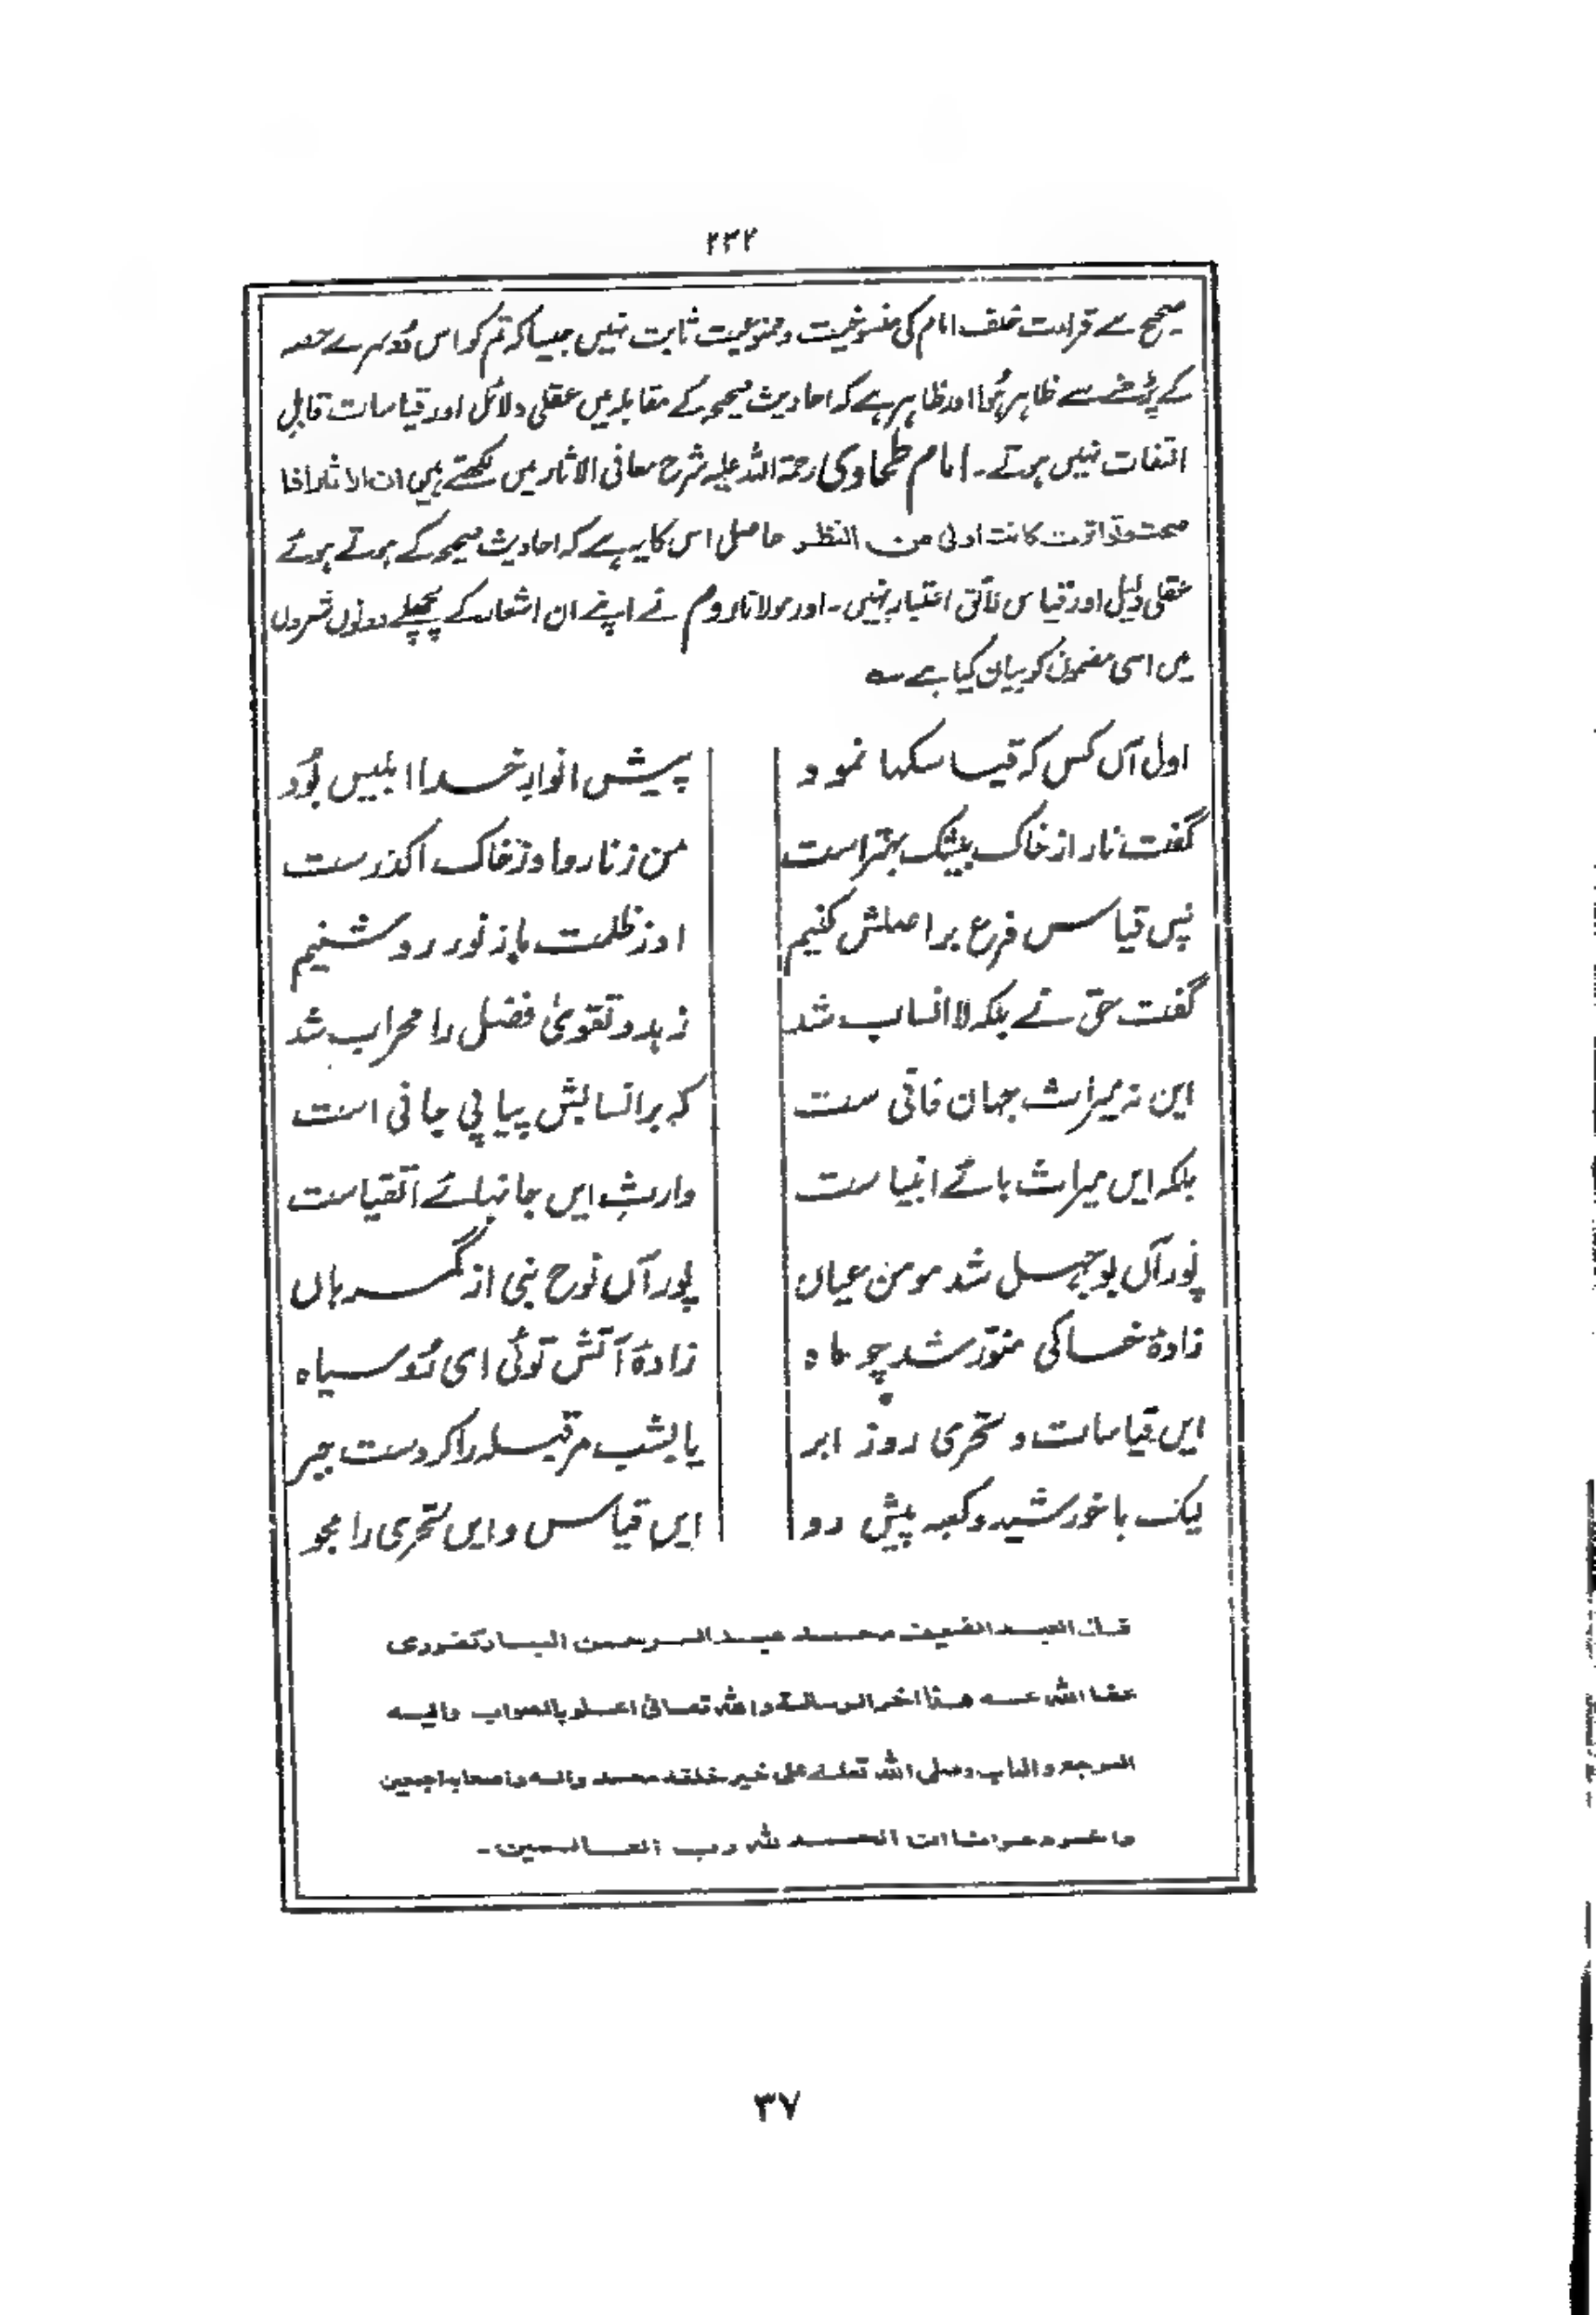 ۲۳۲
صحیح سے قراءت خلف امام کی منسوخیت و ممنوعیت ثابت نہیں جیسا کہ تم کو اس دوسرے حصہ
کے پڑھنے سے ظاہر ہوگا اور ظاہر ہے کہ احادیث صحیحہ کے مقابلہ میں عقلی دلائل اور قیاسات قابلِ
التفات نہیں ہوتے۔ امام طحاوی رحمۃ اللہ علیہ شرح معانی الاثار میں لکھتے ہیں ان الاثار اذا
صحت وتواترت کانت اولیٰ من النظر حاصل اس کا یہ ہے کہ احادیث صحیحہ کے ہوتے ہوئے
عقلی دلیل اور قیاس لائق اعتبار نہیں۔ اور مولانا روم نے اپنے ان اشعار کے پچھلے دونوں شعروں
میں اسی مضمون کو بیان کیا ہے ؎
اول آں کس کہ قیاسکہا نمود پیش انوارِ خدا ابلیس بُود
گفت نار از خاک بیشک بہتر است من ز نار و او ز خاک اکدرست
پس قیاس فرع بر اصلش کنیم او ز ظلمت ما ز نور روشنیم
گفت حق نے بلکہ لا انساب شد زہد و تقویٰ فضل را محراب شد
این نہ میراث جہان فانی ست کہ بر انسابش بیابی جانی است
بلکہ ایں میراث ہائے انبیا ست وارثِ ایں جانہائے اتقیاست
پُور آں بوجہل شد مومن عیاں پور آں نوح نبی از گمرہاں
زادۂ خاکی منوّر شد چو ماہ زادۂ آتش توئی ای رُو سیاہ
ایں قیاسات و تحری روز ابر یا بشب مر قبلہ را کردست جبر
لیک با خورشید و کعبہ پیش رو ایں قیاس و ایں تحری را مجو
قال العبد الضعیف محمد عبد الرحمن المبارکفوری
عفا اللہ عنہ ھذا اخر الرسالۃ واللہ تعالیٰ اعلم بالصواب والیہ
المرجع والماب وصلی اللہ تعالیٰ علی خیر خلقہ محمد والہ واصحابہ اجمعین
واخر دعوانا ان الحمد للہ رب العالمین۔
۳۷